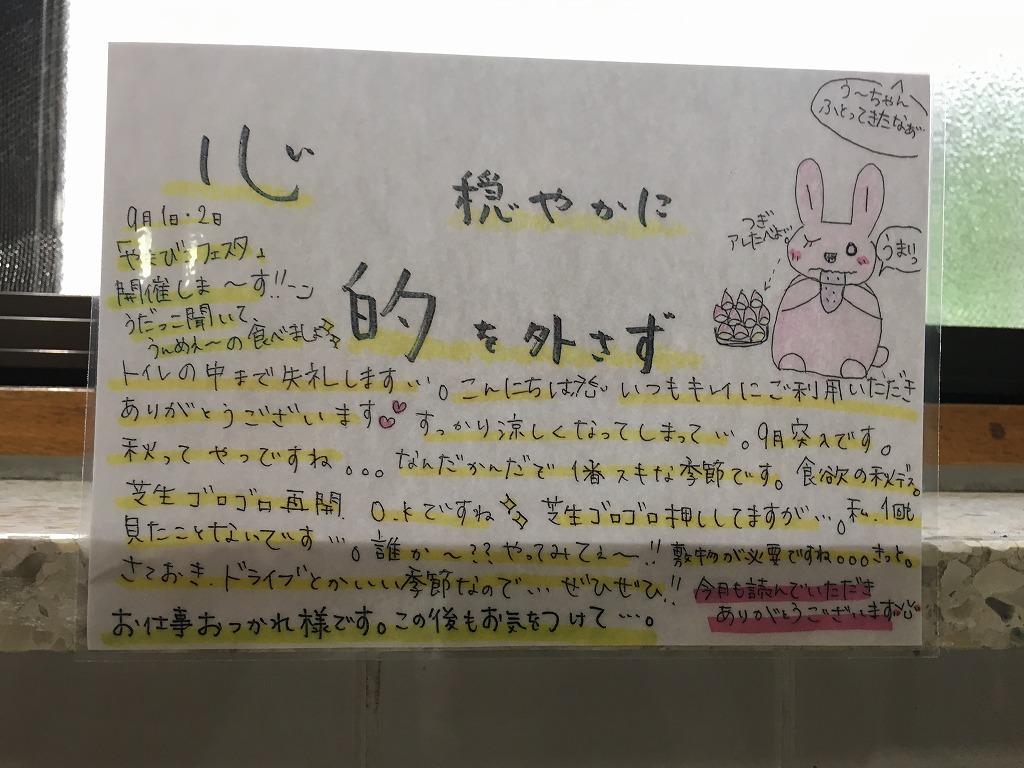 う〜ちゃん
ふとってきたなぁ…
心 穏やかに
つぎ
アレたべよ…
うまいっ
9月1日・2日
「やまびこフェスタ」
開催しま〜す!!
うだっこ聞いて、
うんめぇ〜の食べましょ
的を外さず
トイレの中まで失礼します…。こんにちは いつもキレイにご利用いただき
ありがとうございます すっかり涼しくなってしまって…。9月突入です。
秋ってやつですね。。。なんだかんだで1番スキな季節です。食欲の秋デス。
芝生ゴロゴロ再開、O.Kですね 芝生ゴロゴロ押ししてますが…。私、1個も
見たことないです…。誰か〜??やってみてぇ〜!!敷物が必要ですね。。。きっと。
さておき、ドライブとかいい季節なので…ぜひぜひ!!
今月も読んでいただき
ありがとうございます
お仕事おつかれ様です。この後もお気をつけて…。